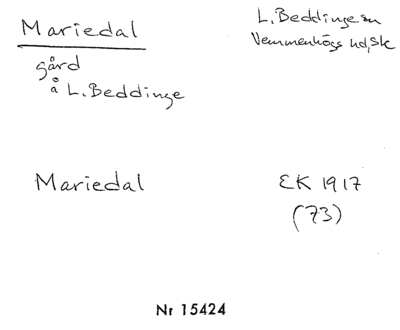 Mariedal
L. Beddinge sn
Vemmenhögs hd, Sk
gård
å L. Beddinge
Mariedal
EK 1917
(73)
Nr 15424